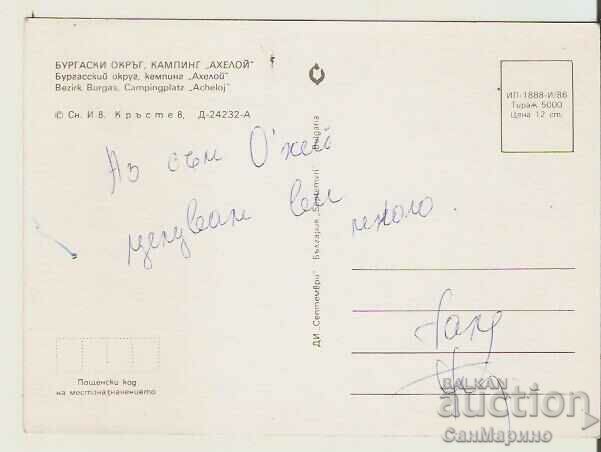 БУРГАСКИ ОКРЪГ, КАМПИНГ „АХЕЛОЙ"
Бургасский округ, кемпинг „Ахелой"
Bezirk Burgas, Campingplatz „Acheloj"
© Сн. Ив. Кръстев, Д-24232-А
ИП-1888-И/86
Тираж 5000
Цена 12 ст.
Аз съм О'кей
целувам ви много.
ДИ „Септември" България „Septemvri" Bulgaria
Пощенски код
на местоназначението
BALKAN
auction
СанМарино